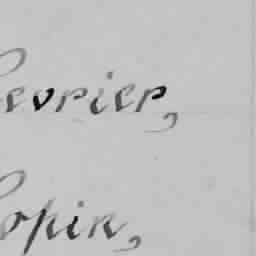 evrier,
opin,